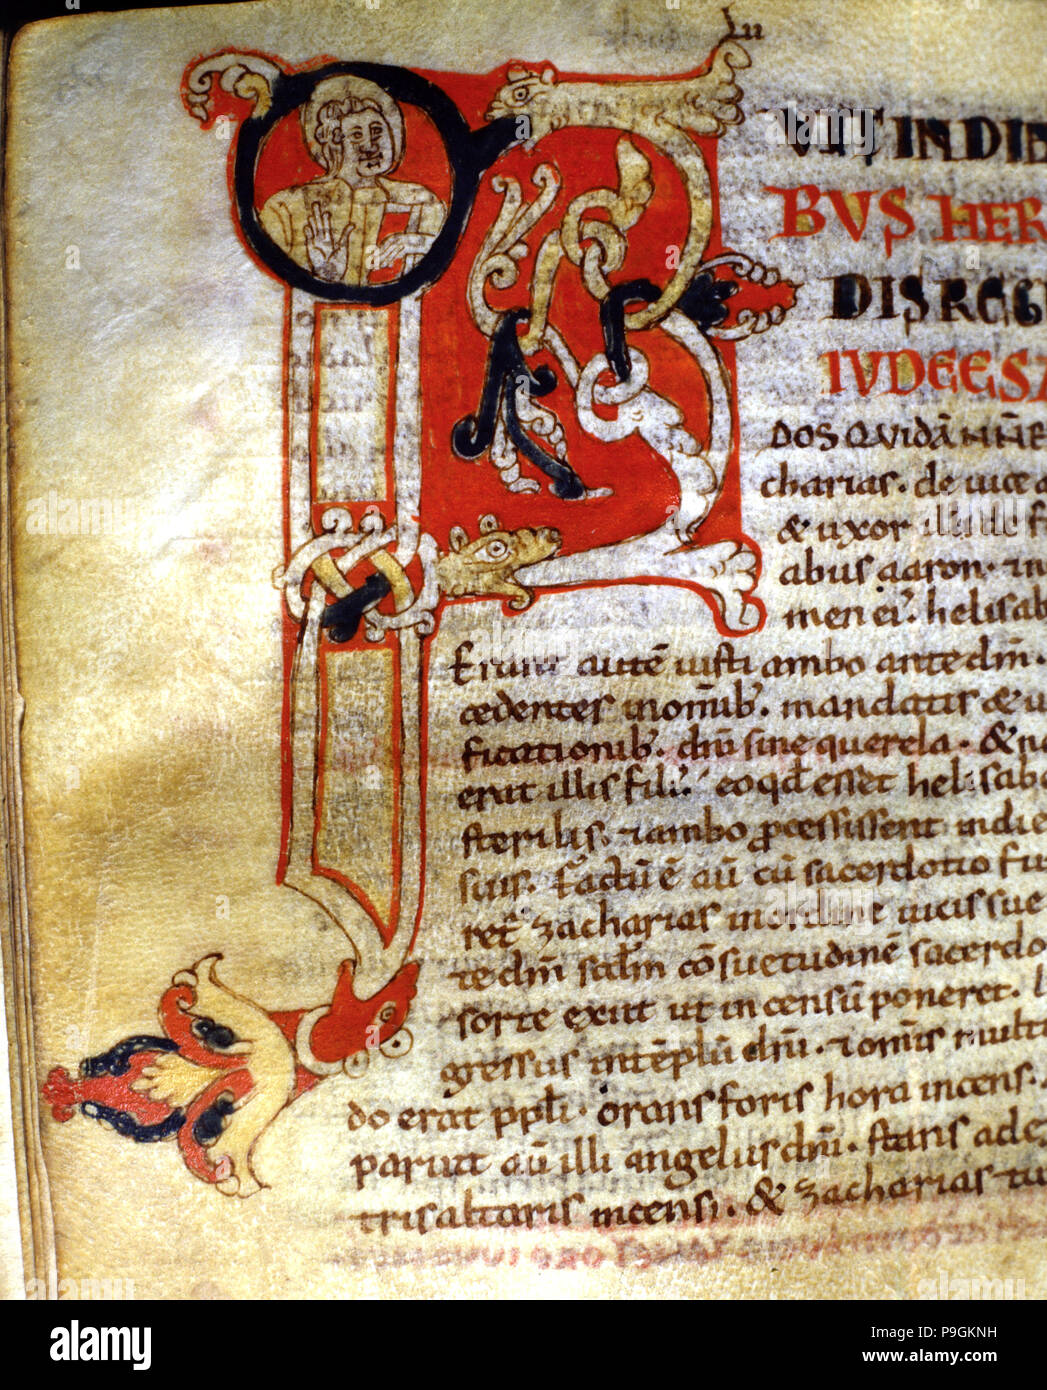 F
LU
VIT IN DIE
BVS HER
DIS REGI
IVDEE SA
DOS QVIDĀ
charias. de uice a
& uxor illi de f
abus aaron. & in
men ei'. helisab
Erant autē iusti ambo ante dm̄.
cedentes in omib;. mandatis & iu
ficationib;. dn̄i sine querela. & n
erat illis fili'. eo qd̄ esset helisab
sterilis. & ambo pcessissent in die
suis. Factū ē aū cū sacerdotio fu
ret zacharias in ordine uicis sue
te dm̄. scdm̄ cōsuetudinē sacerdo
sorte exiit ut incensū poneret.
gressus in tēplū dn̄i. & omis multi
do erat ppl̄i. orans foris hora incensi.
paruit aū illi angelus dn̄i. stans a de
tris altaris incensi. & zacharias tu
alamy
alamy
Image ID: P9GKNH
www.alamy.com